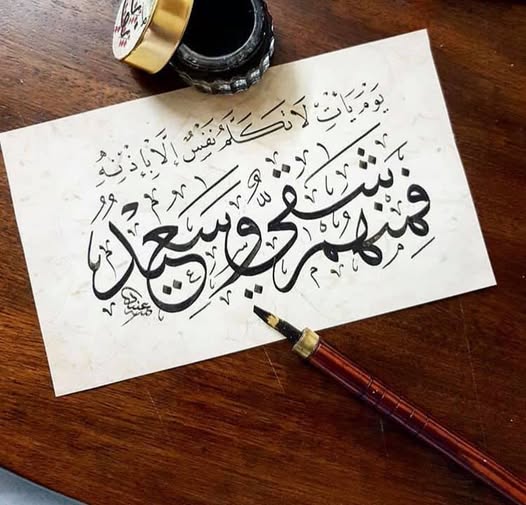 يَوْمَ يَأْتِ لَا تَكَلَّمُ نَفْسٌ إِلَّا بِإِذْنِهِ
فَمِنْهُمْ شَقِيٌّ وَسَعِيدٌ